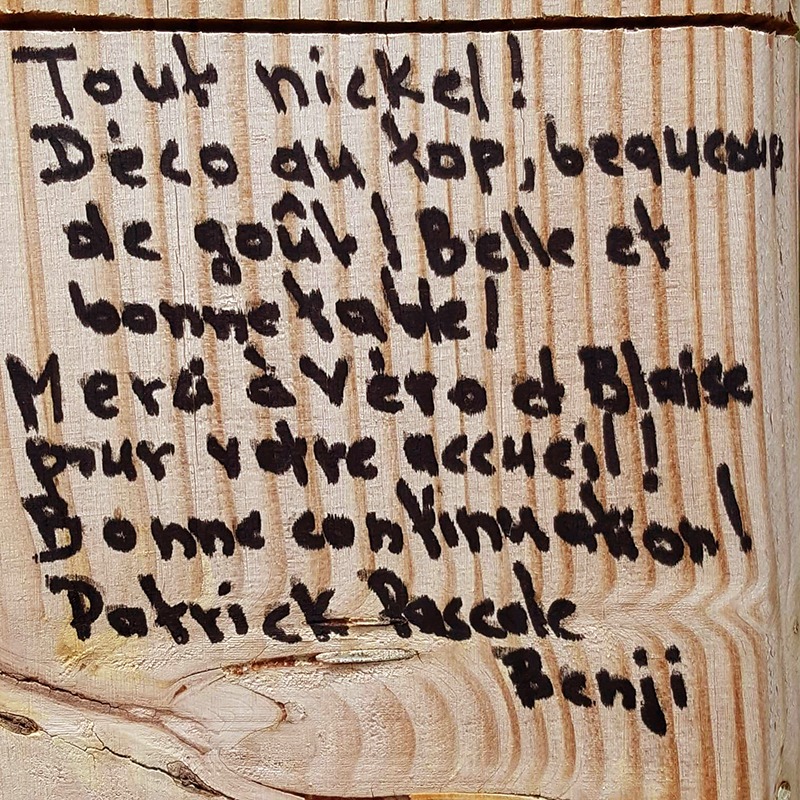 Tout nickel!
Dèco au top, beaucoup
de goût! Belle et
bonne table!
Merci à Vèro et Blaise
pour votre accueil!
Bonne continuation!
Patrick Pascale
Benji